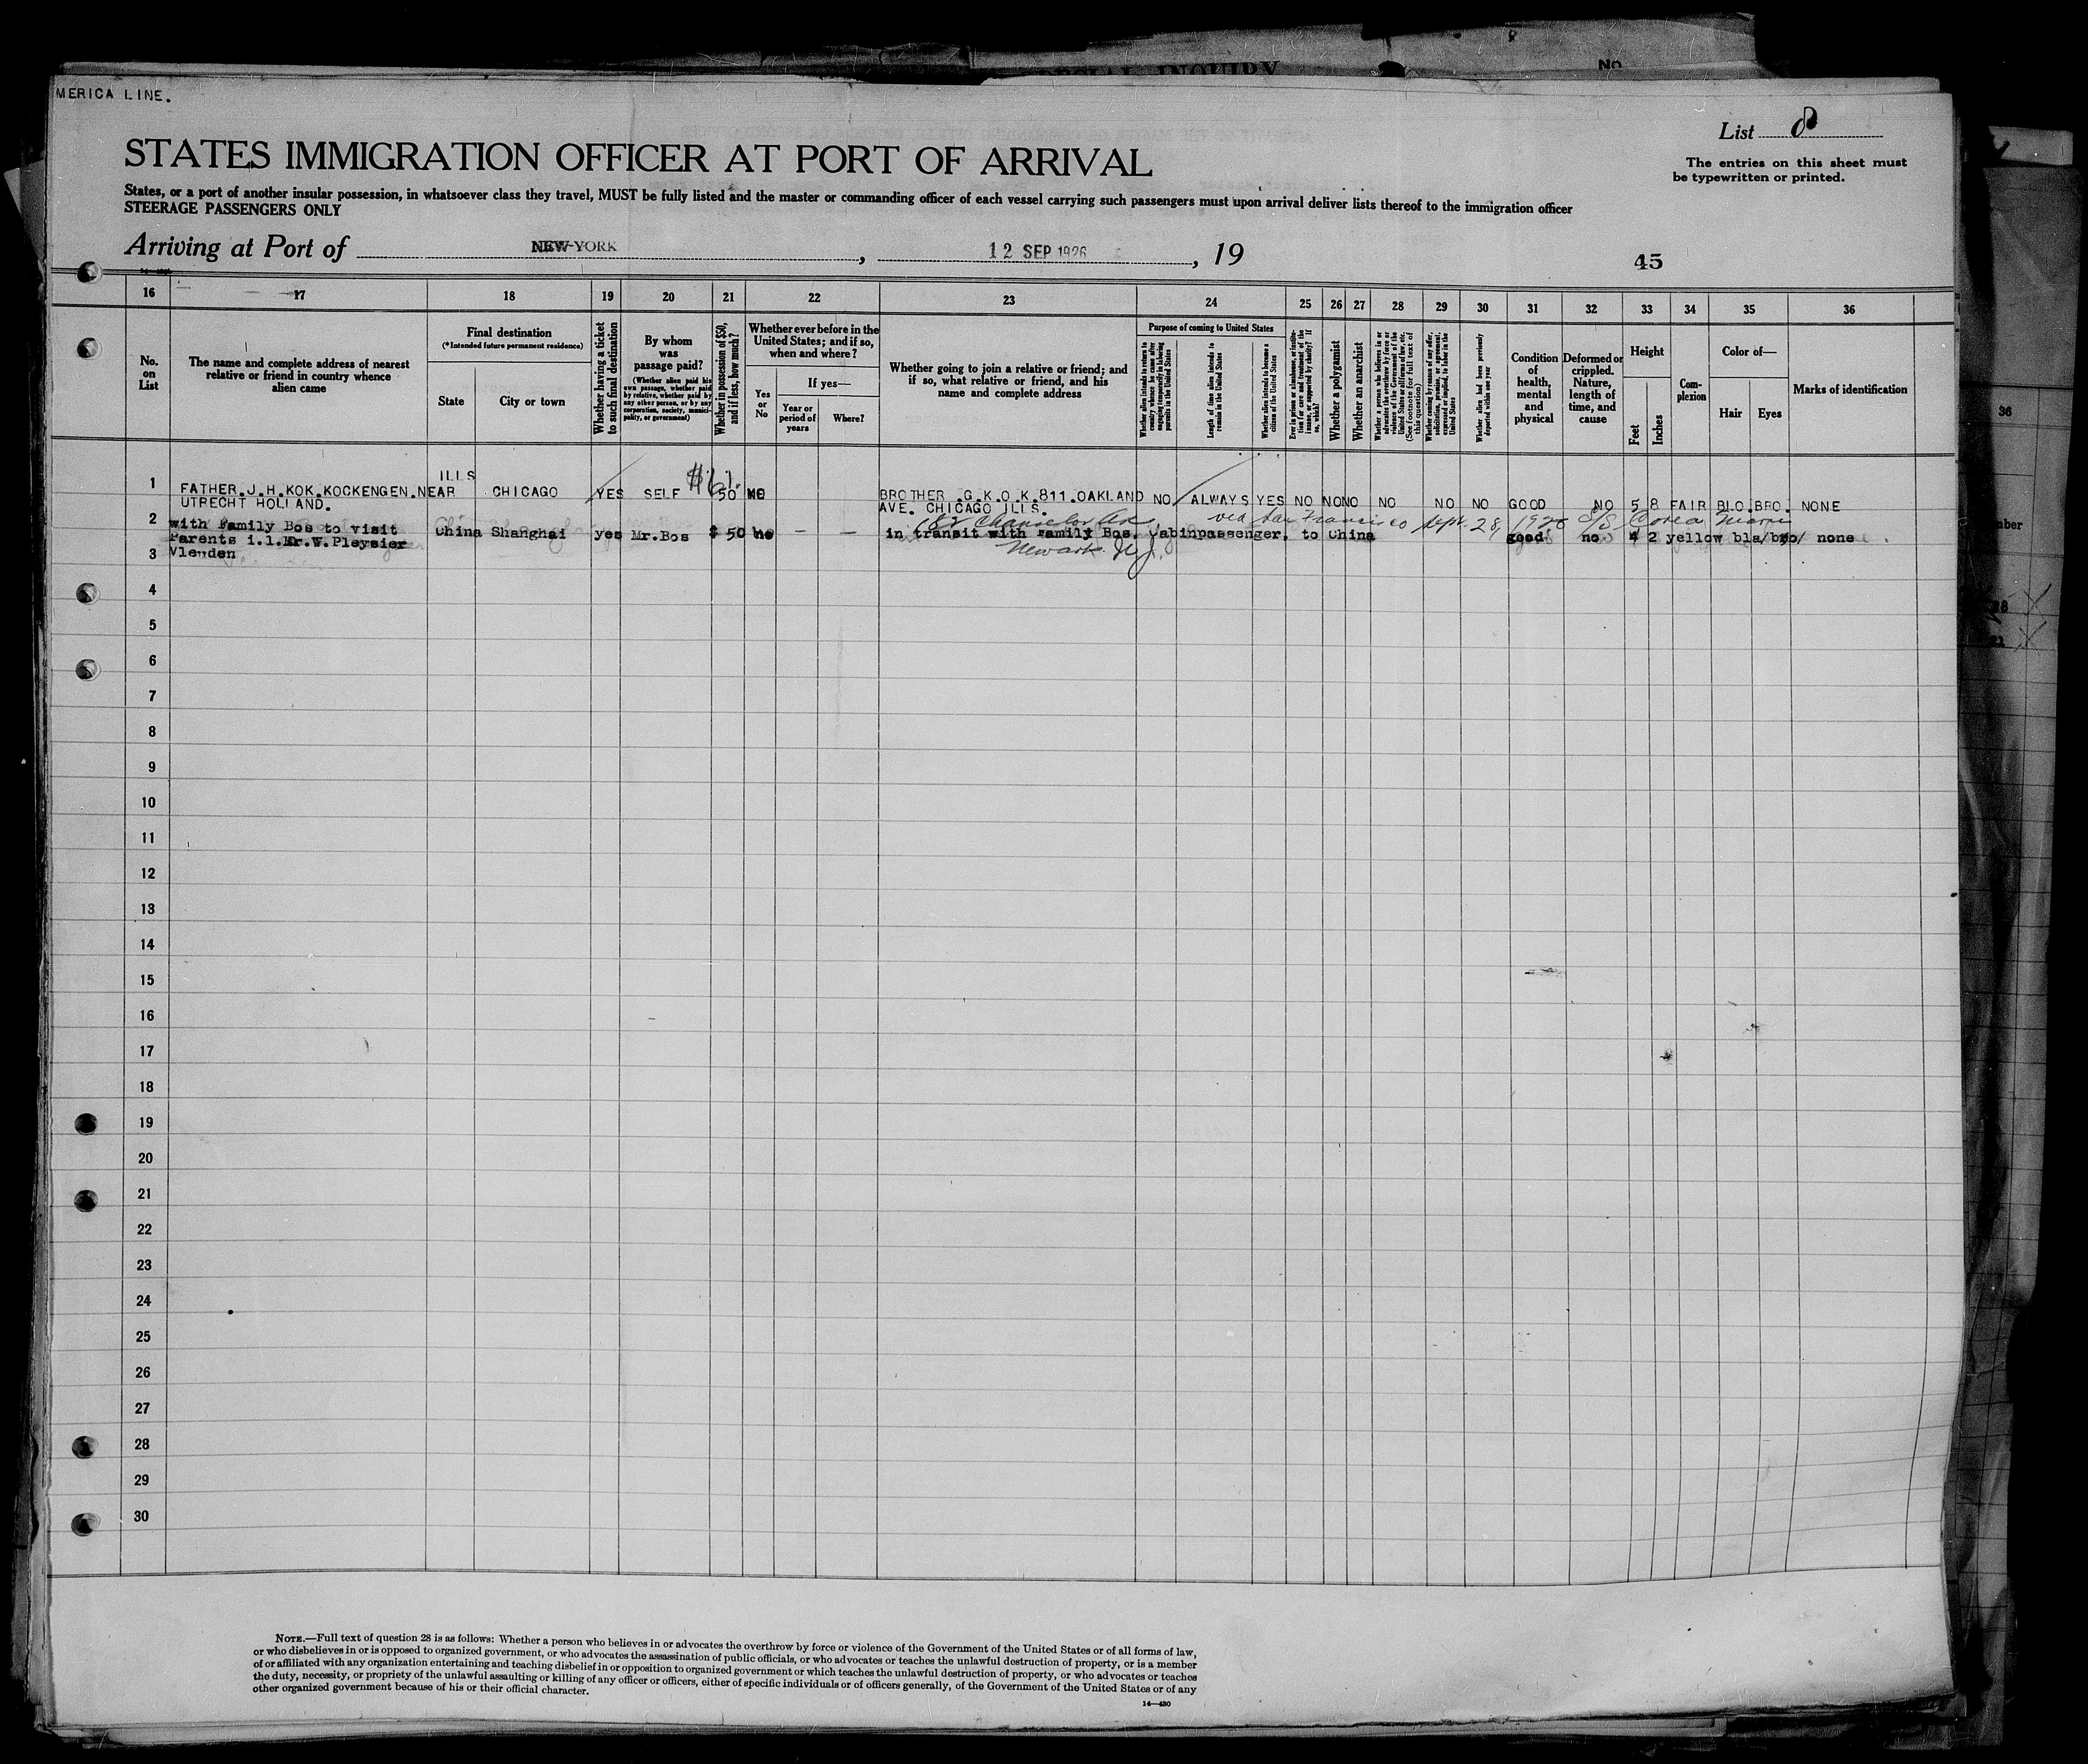 SPECIAL INQUIRY
No.
MERICA LINE.
List 8
STATES IMMIGRATION OFFICER AT PORT OF ARRIVAL
The entries on this sheet must
be typewritten or printed.
States, or a port of another insular possession, in whatsoever class they travel, MUST be fully listed and the master or commanding officer of each vessel carrying such passengers must upon arrival deliver lists thereof to the immigration officer
STEERAGE PASSENGERS ONLY
Arriving at Port of NEW-YORK, 12 SEP 1926, 19
45
16 17 18 19 20 21 22 23 24 25 26 27 28 29 30 31 32 33 34 35 36
No. on List
The name and complete address of nearest
relative or friend in country whence
alien came
Final destination
(*Intended future permanent residence)
State
City or town
Whether having a ticket
to such final destination
By whom
was
passage paid?
(Whether alien paid his
own passage, whether paid
by relative, whether paid by
any other person, or by any
corporation, society, munici-
pality, or government)
Whether in possession of $50,
and if less, how much?
Whether ever before in the
United States; and if so,
when and where?
Yes
or
No
If yes—
Year or
period of
years
Where?
Whether going to join a relative or friend; and
if so, what relative or friend, and his
name and complete address
Purpose of coming to United States
Whether alien intends to return to
country whence he came after
engaging temporarily in laboring
pursuits in the United States
Length of time alien intends to
remain in the United States
Whether alien intends to become a
citizen of the United States
Ever in prison or almshouse, or institu-
tion for care and treatment of the
insane, or supported by charity? If
so, which?
Whether a polygamist
Whether an anarchist
Whether a person who believes in or
advocates the overthrow by force or
violence of the Government of the
United States or all forms of law, etc.
(See footnote for full text of
this question)
Whether coming by reason of any offer,
solicitation, promise, or agreement,
expressed or implied, to labor in the
United States
Whether alien had been previously
deported within one year
Condition
of
health,
mental
and
physical
Deformed or
crippled.
Nature,
length of
time, and
cause
Height
Feet
Inches
Com-
plexion
Color of—
Hair
Eyes
Marks of identification
ILLS
1 FATHER.J.H.KOK.KOCKENGEN.NEAR CHICAGO YES SELF 50 NO BROTHER .G.K.O.K.811.OAKLAND NO ALWAYS YES NO NO NO NO NO NO GOOD NO 5 8 FAIR BLO.BRO. NONE
UTRECHT HOLLAND. AVE. CHICAGO ILLS.
via San Francisco Sept. 28, 1926 S/S Corea Maru
2 with Family Bos to visit China Shanghai yes Mr.Bos $ 50 no — — in transit with Family Bos. Cabinpassenger. to China good no 4 2 yellow bla/bro/ none
Parents i.l.Mr.W.Pleysier
Newark N.J.
3
4
5
6
7
8
9
10
11
12
13
14
15
16
17
18
19
20
21
22
23
24
25
26
27
28
29
30
NOTE.—Full text of question 28 is as follows: Whether a person who believes in or advocates the overthrow by force or violence of the Government of the United States or of all forms of law,
or who disbelieves in or is opposed to organized government, or who advocates the assassination of public officials, or who advocates or teaches the unlawful destruction of property, or is a member
of or affiliated with any organization entertaining and teaching disbelief in or opposition to organized government or which teaches the unlawful destruction of property, or who advocates or teaches
the duty, necessity, or propriety of the unlawful assaulting or killing of any officer or officers, either of specific individuals or of officers generally, of the Government of the United States or of any
other organized government because of his or their official character.
14—430
36